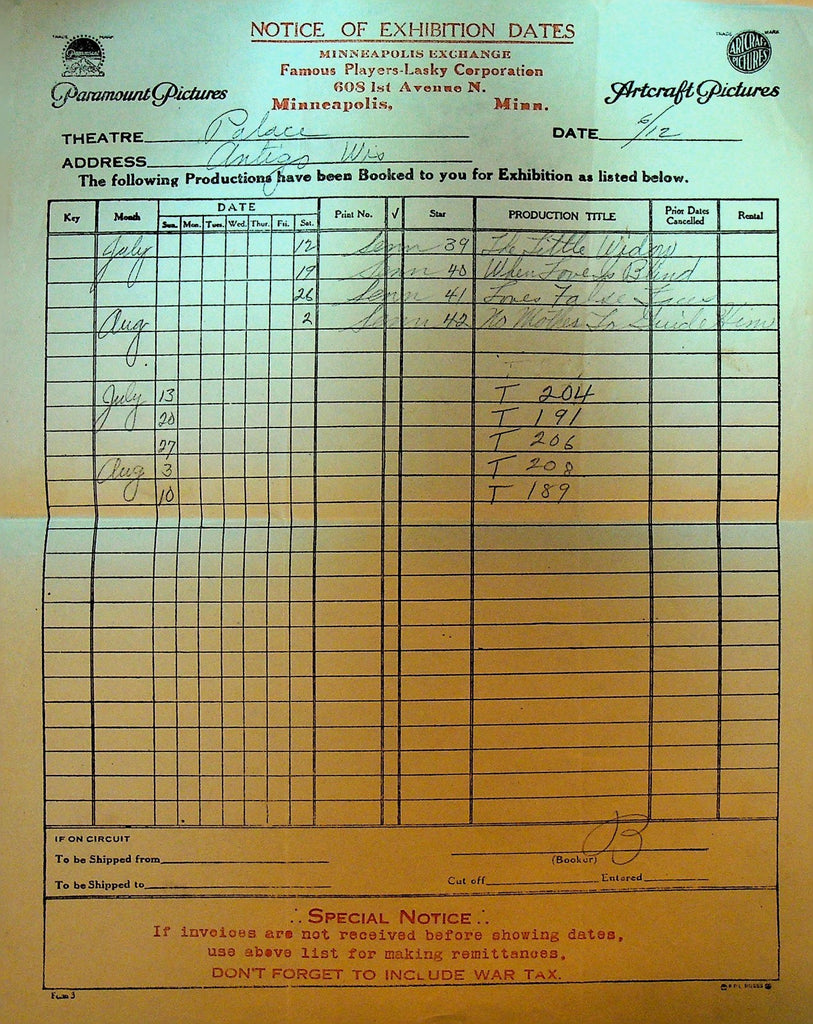 NOTICE OF EXHIBITION DATES
TRADE MARK
Paramount Pictures
MINNEAPOLIS EXCHANGE
Famous Players-Lasky Corporation
608 1st Avenue N.
Minneapolis, Minn.
TRADE MARK
ARTCRAFT PICTURES
Artcraft Pictures
THEATRE Palace DATE 6/12
ADDRESS Antigo Wis
The following Productions have been Booked to you for Exhibition as listed below.
Key Month DATE Print No. √ Star PRODUCTION TITLE Prior Dates Cancelled Rental
Sun. Mon. Tues. Wed. Thur. Fri. Sat.
July 12 Senn 39 The Little Widow
19 Senn 40 When Love is Blind
26 Senn 41 Loves False Faces
Aug 2 Senn 42 No Mother To Guide Him
July 13 T 204
20 T 191
27 T 206
Aug 3 T 208
10 T 189
IF ON CIRCUIT
To be Shipped from
B
(Booker)
To be Shipped to Cut off Entered
∴ SPECIAL NOTICE ∴
If invoices are not received before showing dates,
use above list for making remittances.
DON'T FORGET TO INCLUDE WAR TAX.
Form 3